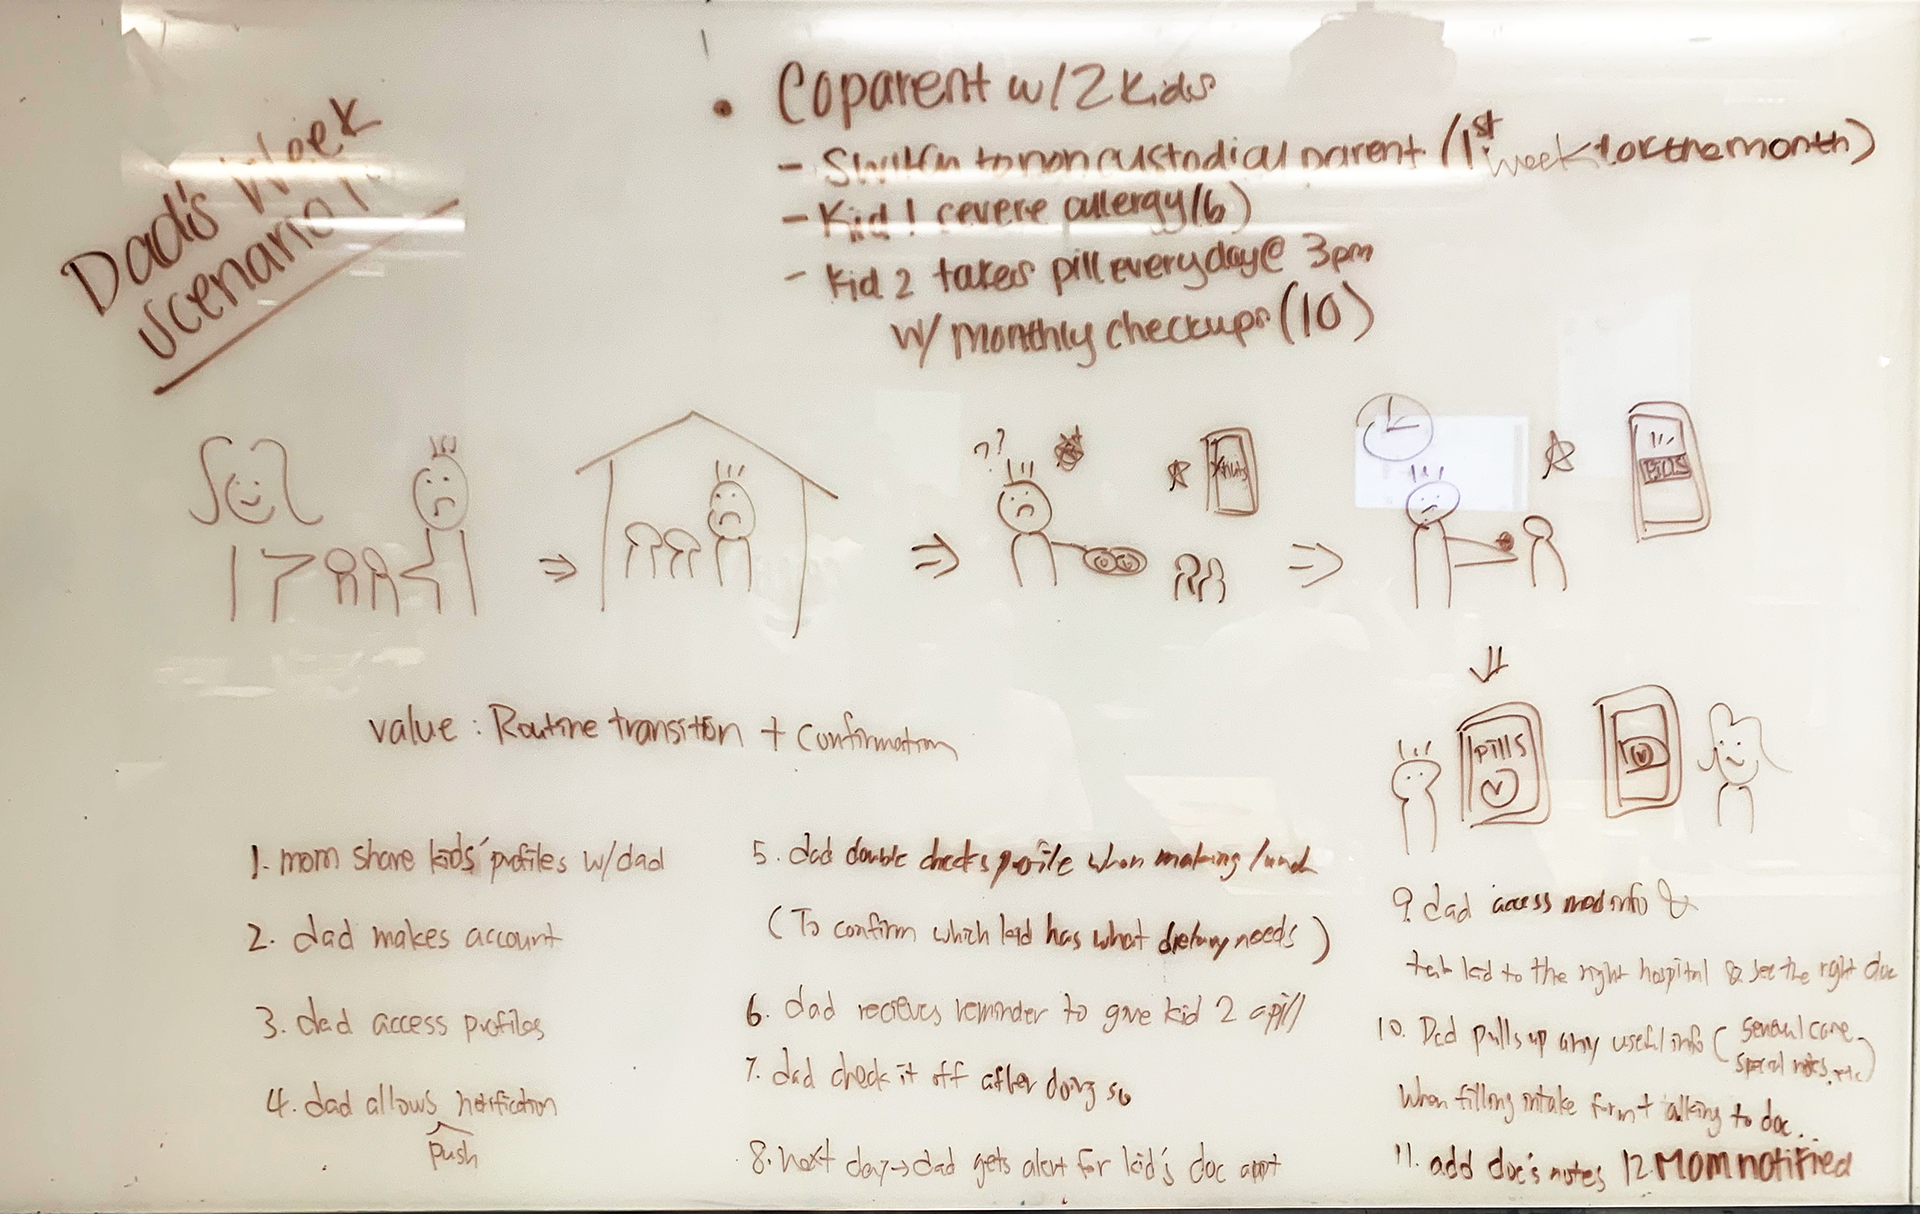 Dad's Week
Scenario 1.
• Coparent w/2 kids
- Switch to noncustodial parent (1st week for the month)
- Kid 1 severe allergy (6)
- Kid 2 takes pill everyday @ 3pm
w/ monthly checkups (10)
??
PILLS
PILLS
value: Routine transition + confirmation
1. mom share kids' profiles w/dad
2. dad makes account
3. dad access profiles
4. dad allows notification
push
5. dad double checks profile when making lunch
(To confirm which kid has what dietary needs)
6. dad recieves reminder to give kid 2 a pill
7. dad check it off after doing so
8. next day → dad gets alert for kid's doc appt
9. dad access med info &
take kid to the right hospital & see the right doc
10. Dad pulls up any useful info (general care,
special notes, etc)
when filling intake form + talking to doc..
11. add doc's notes 12. Mom notified